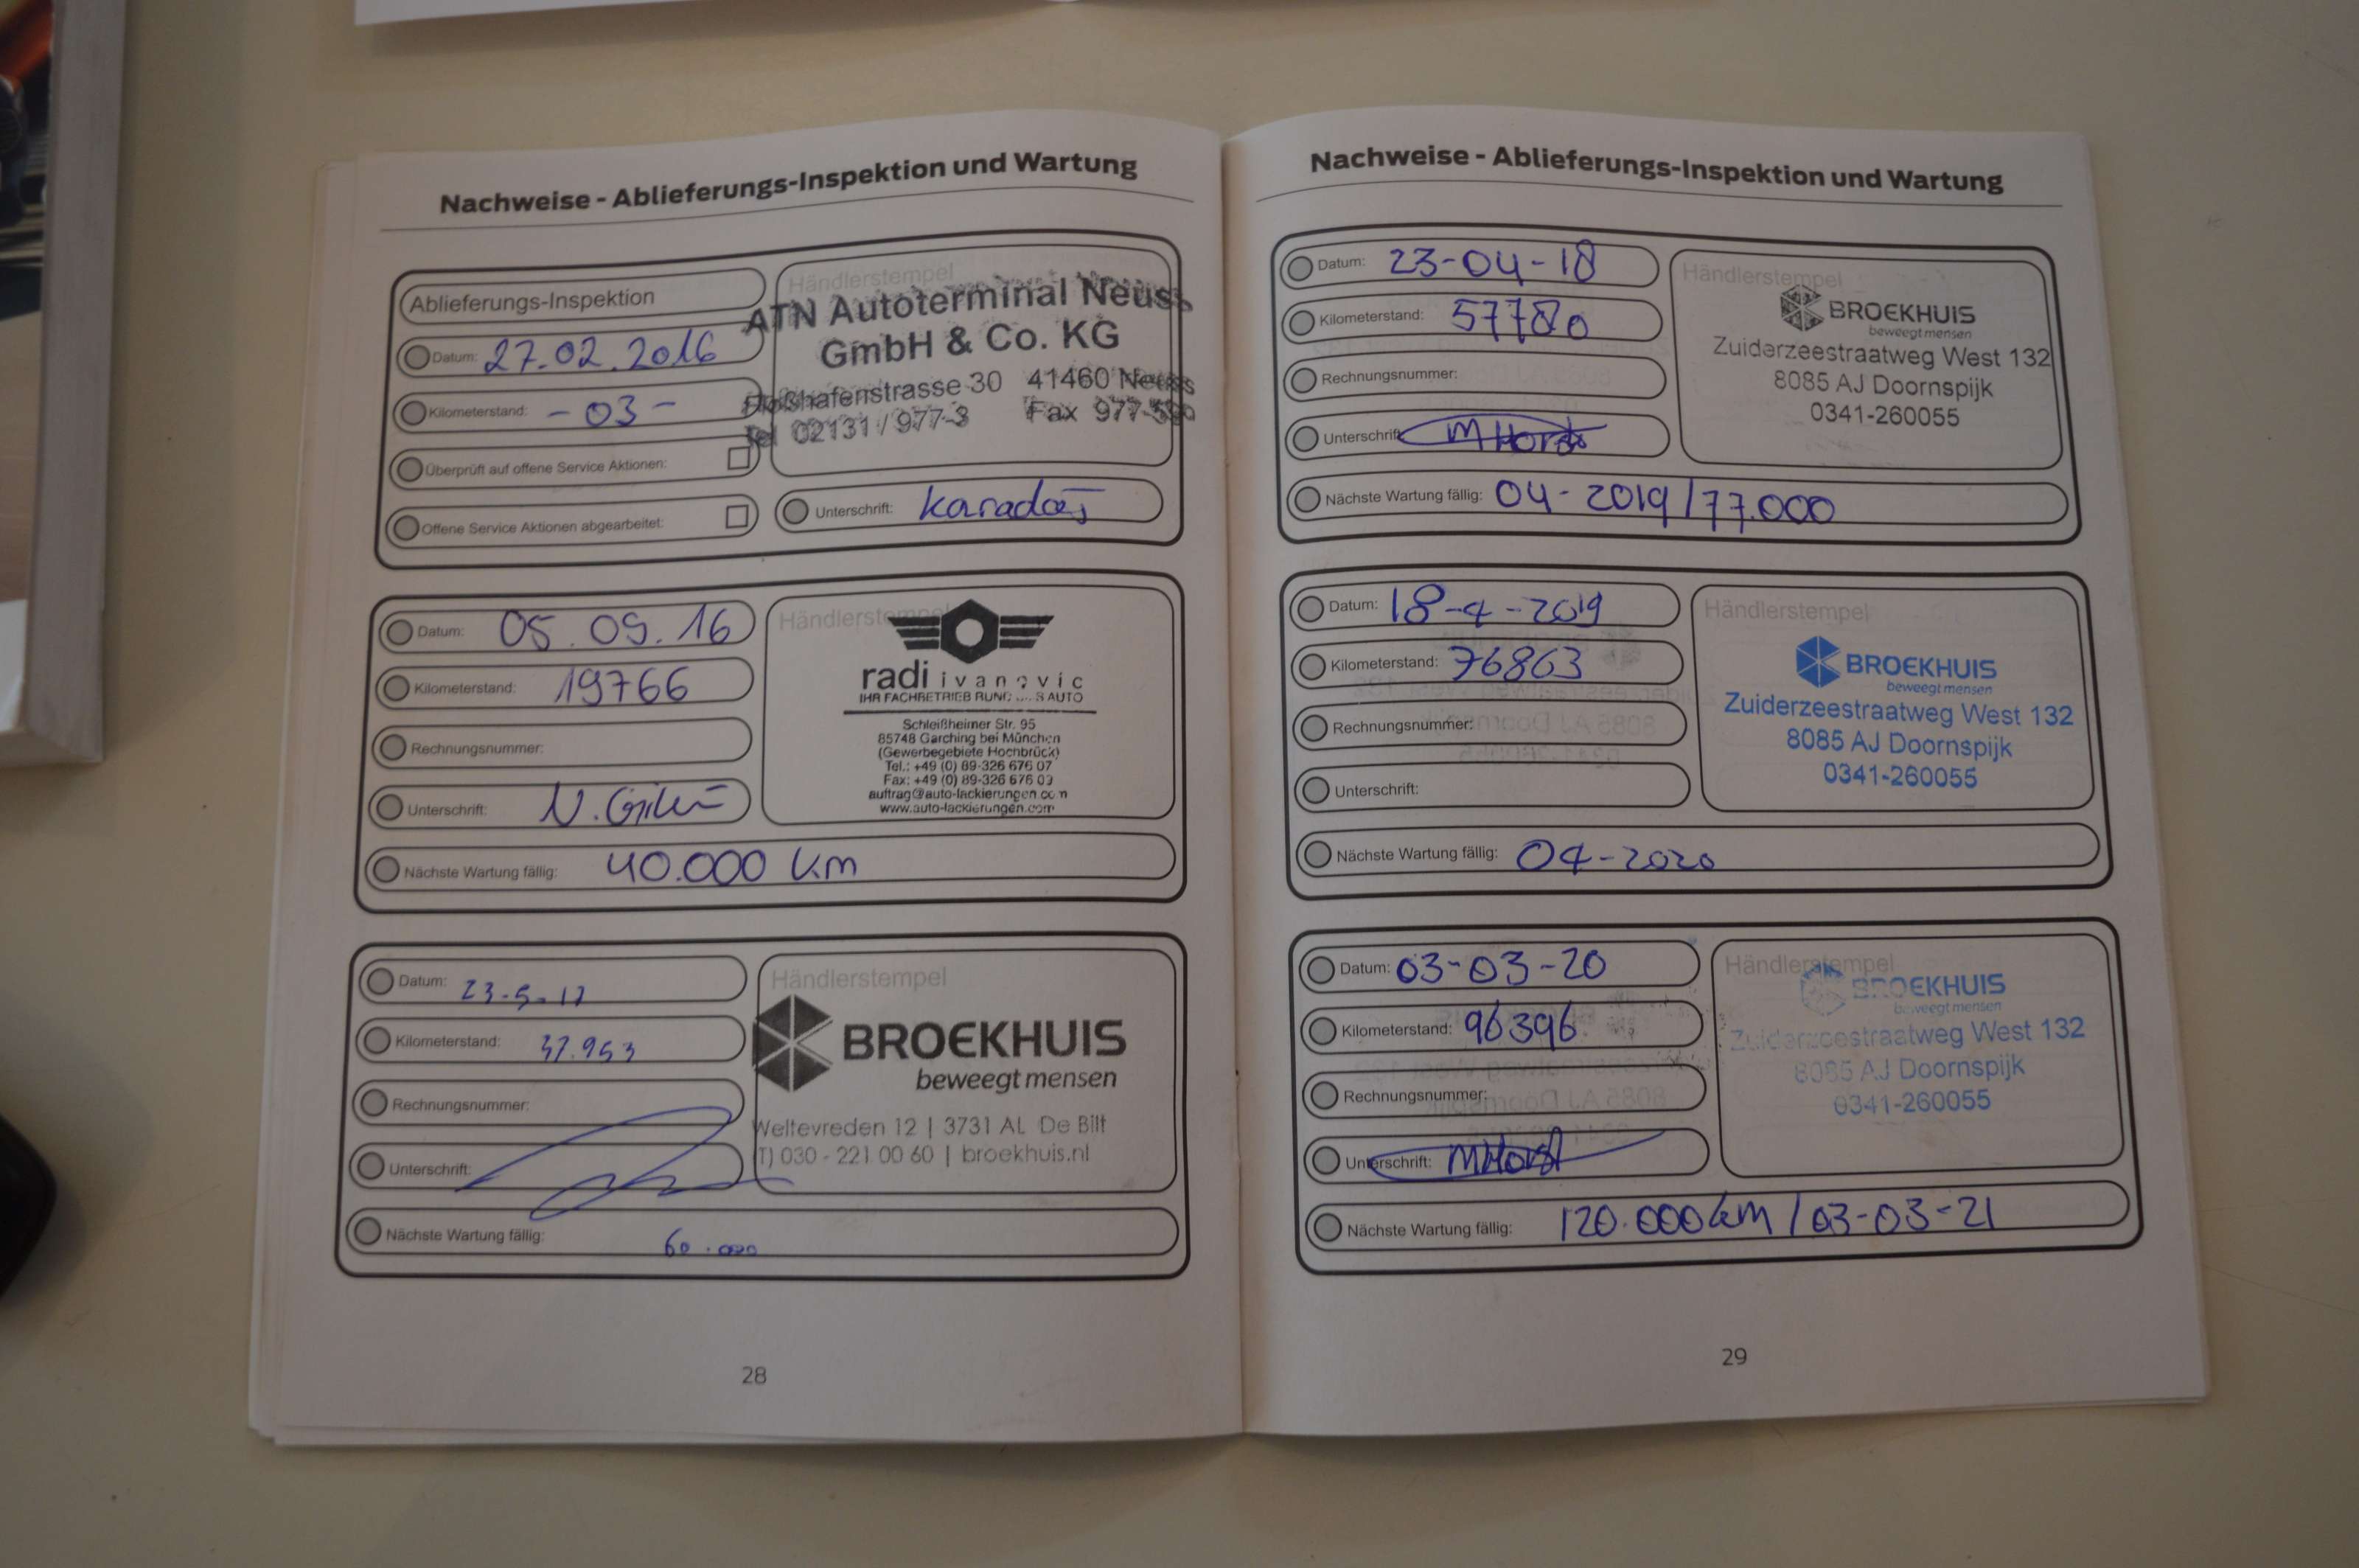 Nachweise - Ablieferungs-Inspektion und Wartung
Ablieferungs-Inspektion
Datum: 27.02.2016
Kilometerstand: -03-
Überprüft auf offene Service Aktionen:
Offene Service Aktionen abgearbeitet:
Händlerstempel
ATN Autoterminal Neuss
GmbH & Co. KG
30 41460 Neuss
Tel 02131 / 977-3 Fax
Unterschrift:
Datum: 05.09.16
Kilometerstand: 19766
Rechnungsnummer:
Unterschrift:
Nächste Wartung fällig: 40.000 km
Händlerstempel
radi ivanovic
IHR FACHBETRIEB RUND AUTO
Schleißheimer Str. 95
85748 Garching bei München
(Gewerbegebiete Hochbrück)
Tel.: +49 (0) 89-326 676 07
Fax: +49 (0) 89-326 676 09
auftrag@auto-lackierungen.com
www.auto-lackierungen.com
Datum: 23-5-17
Kilometerstand: 37.953
Rechnungsnummer:
Unterschrift:
Nächste Wartung fällig: 60.000
Händlerstempel
BROEKHUIS
beweegt mensen
Weltevreden 12 | 3731 AL De Bilt
T) 030 - 221 00 60 | broekhuis.nl
28
Nachweise - Ablieferungs-Inspektion und Wartung
Datum: 23-04-18
Kilometerstand: 57780
Rechnungsnummer:
Unterschrift: MHorst
Nächste Wartung fällig: 04-2019/77.000
Händlerstempel
BROEKHUIS
beweegt mensen
Zuiderzeestraatweg West 132
8085 AJ Doornspijk
0341-260055
Datum: 18-4-2019
Kilometerstand: 76863
Rechnungsnummer:
Unterschrift:
Nächste Wartung fällig: 04-2020
Händlerstempel
BROEKHUIS
beweegt mensen
Zuiderzeestraatweg West 132
8085 AJ Doornspijk
0341-260055
Datum: 03-03-20
Kilometerstand: 96396
Rechnungsnummer:
Unterschrift: MHorst
Nächste Wartung fällig: 120.000km / 03-03-21
Händlerstempel
BROEKHUIS
beweegt mensen
Zuiderzeestraatweg West 132
8085 AJ Doornspijk
0341-260055
29